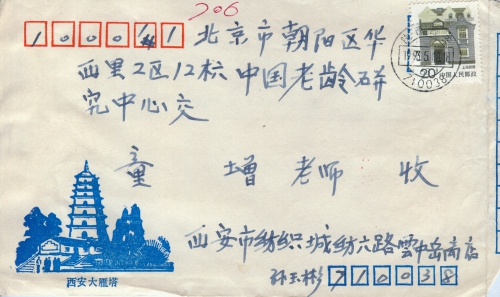 206
100011
北京市朝阳区华
西里2区12栋中国老龄研
究中心交
童增老师 收
西安市纺织城纺六路雲中岳商店
孙玉彬 710038
西安大雁塔
20
中国人民邮政
710038